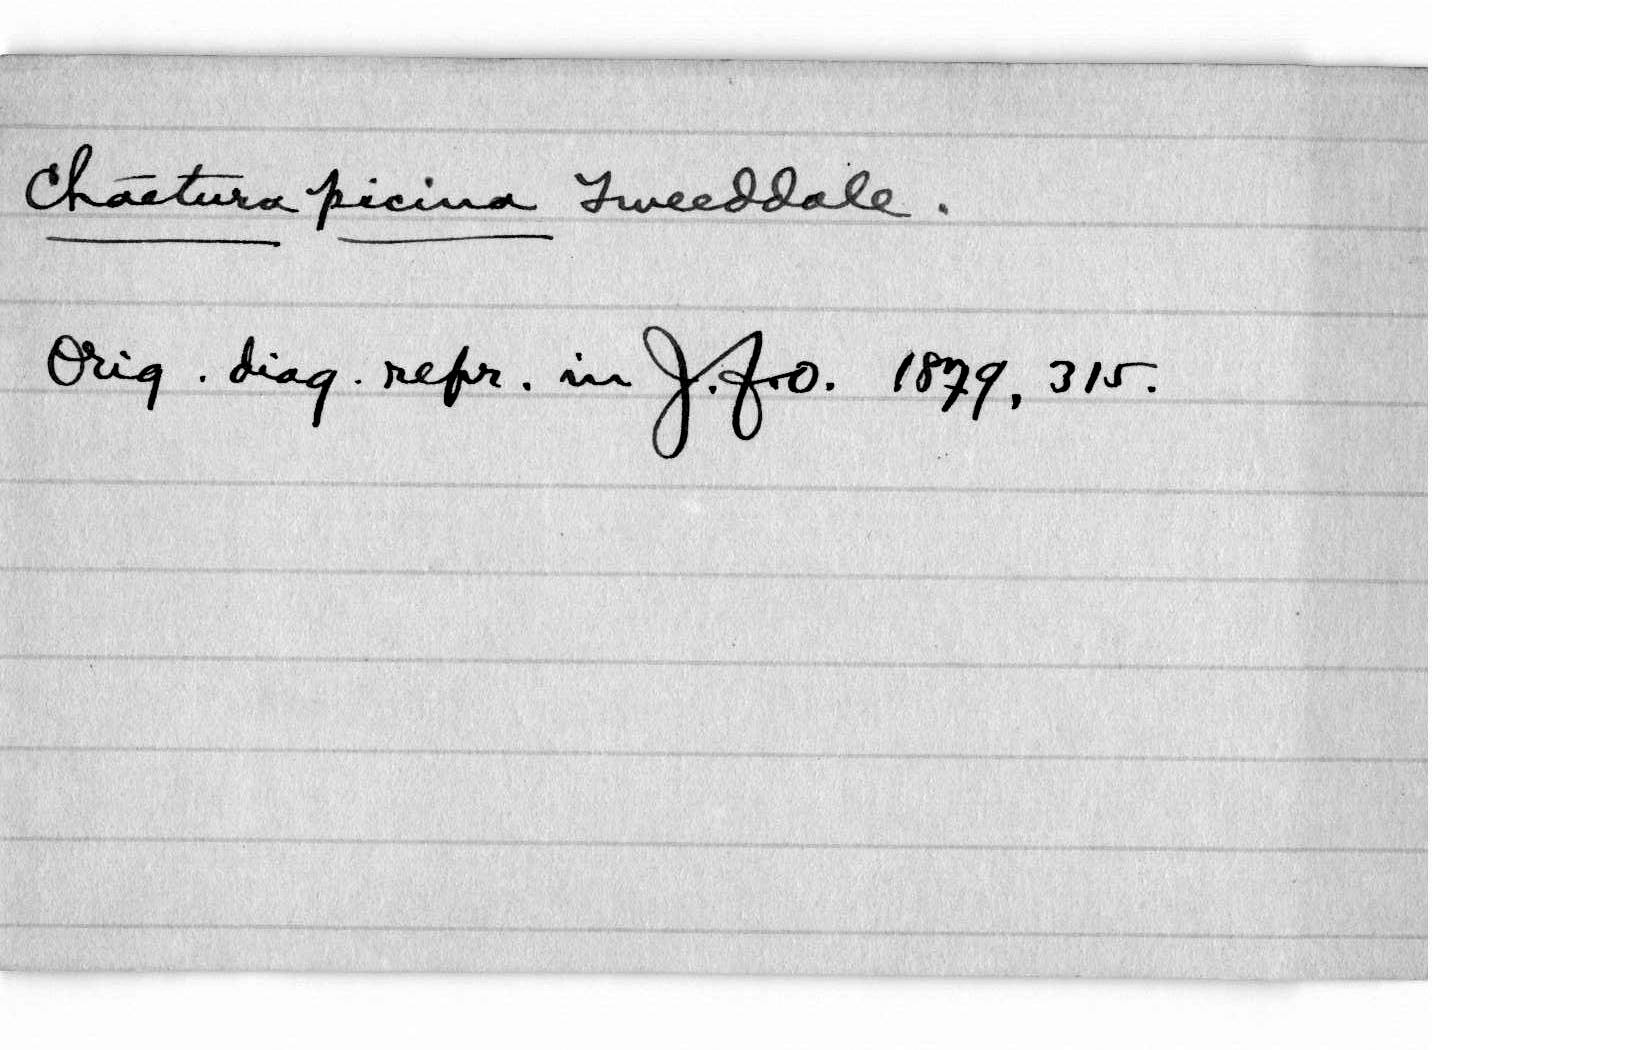 Chaetura picina Tweeddale.
Orig. diag. repr. in J.f.O. 1879, 315.